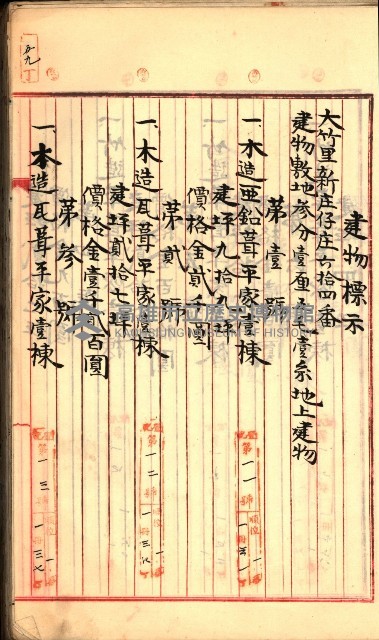 五九
建物標示
大竹里新庄仔庄六拾四番
建物敷地参分壹厘壹糸地上建物
第壹號
一、木造亜鉛葺平家壹棟
建坪九拾九坪
價格金貳千圓
第貳號
一、木造瓦葺平家壹棟
建坪貳拾七坪
價格金壹千貳百圓
第参號
一、木造瓦葺平家壹棟
高雄市立歷史博物館
KAOHSIUNG MUSEUM OF HISTORY
第一一號
第一二號
第一三號